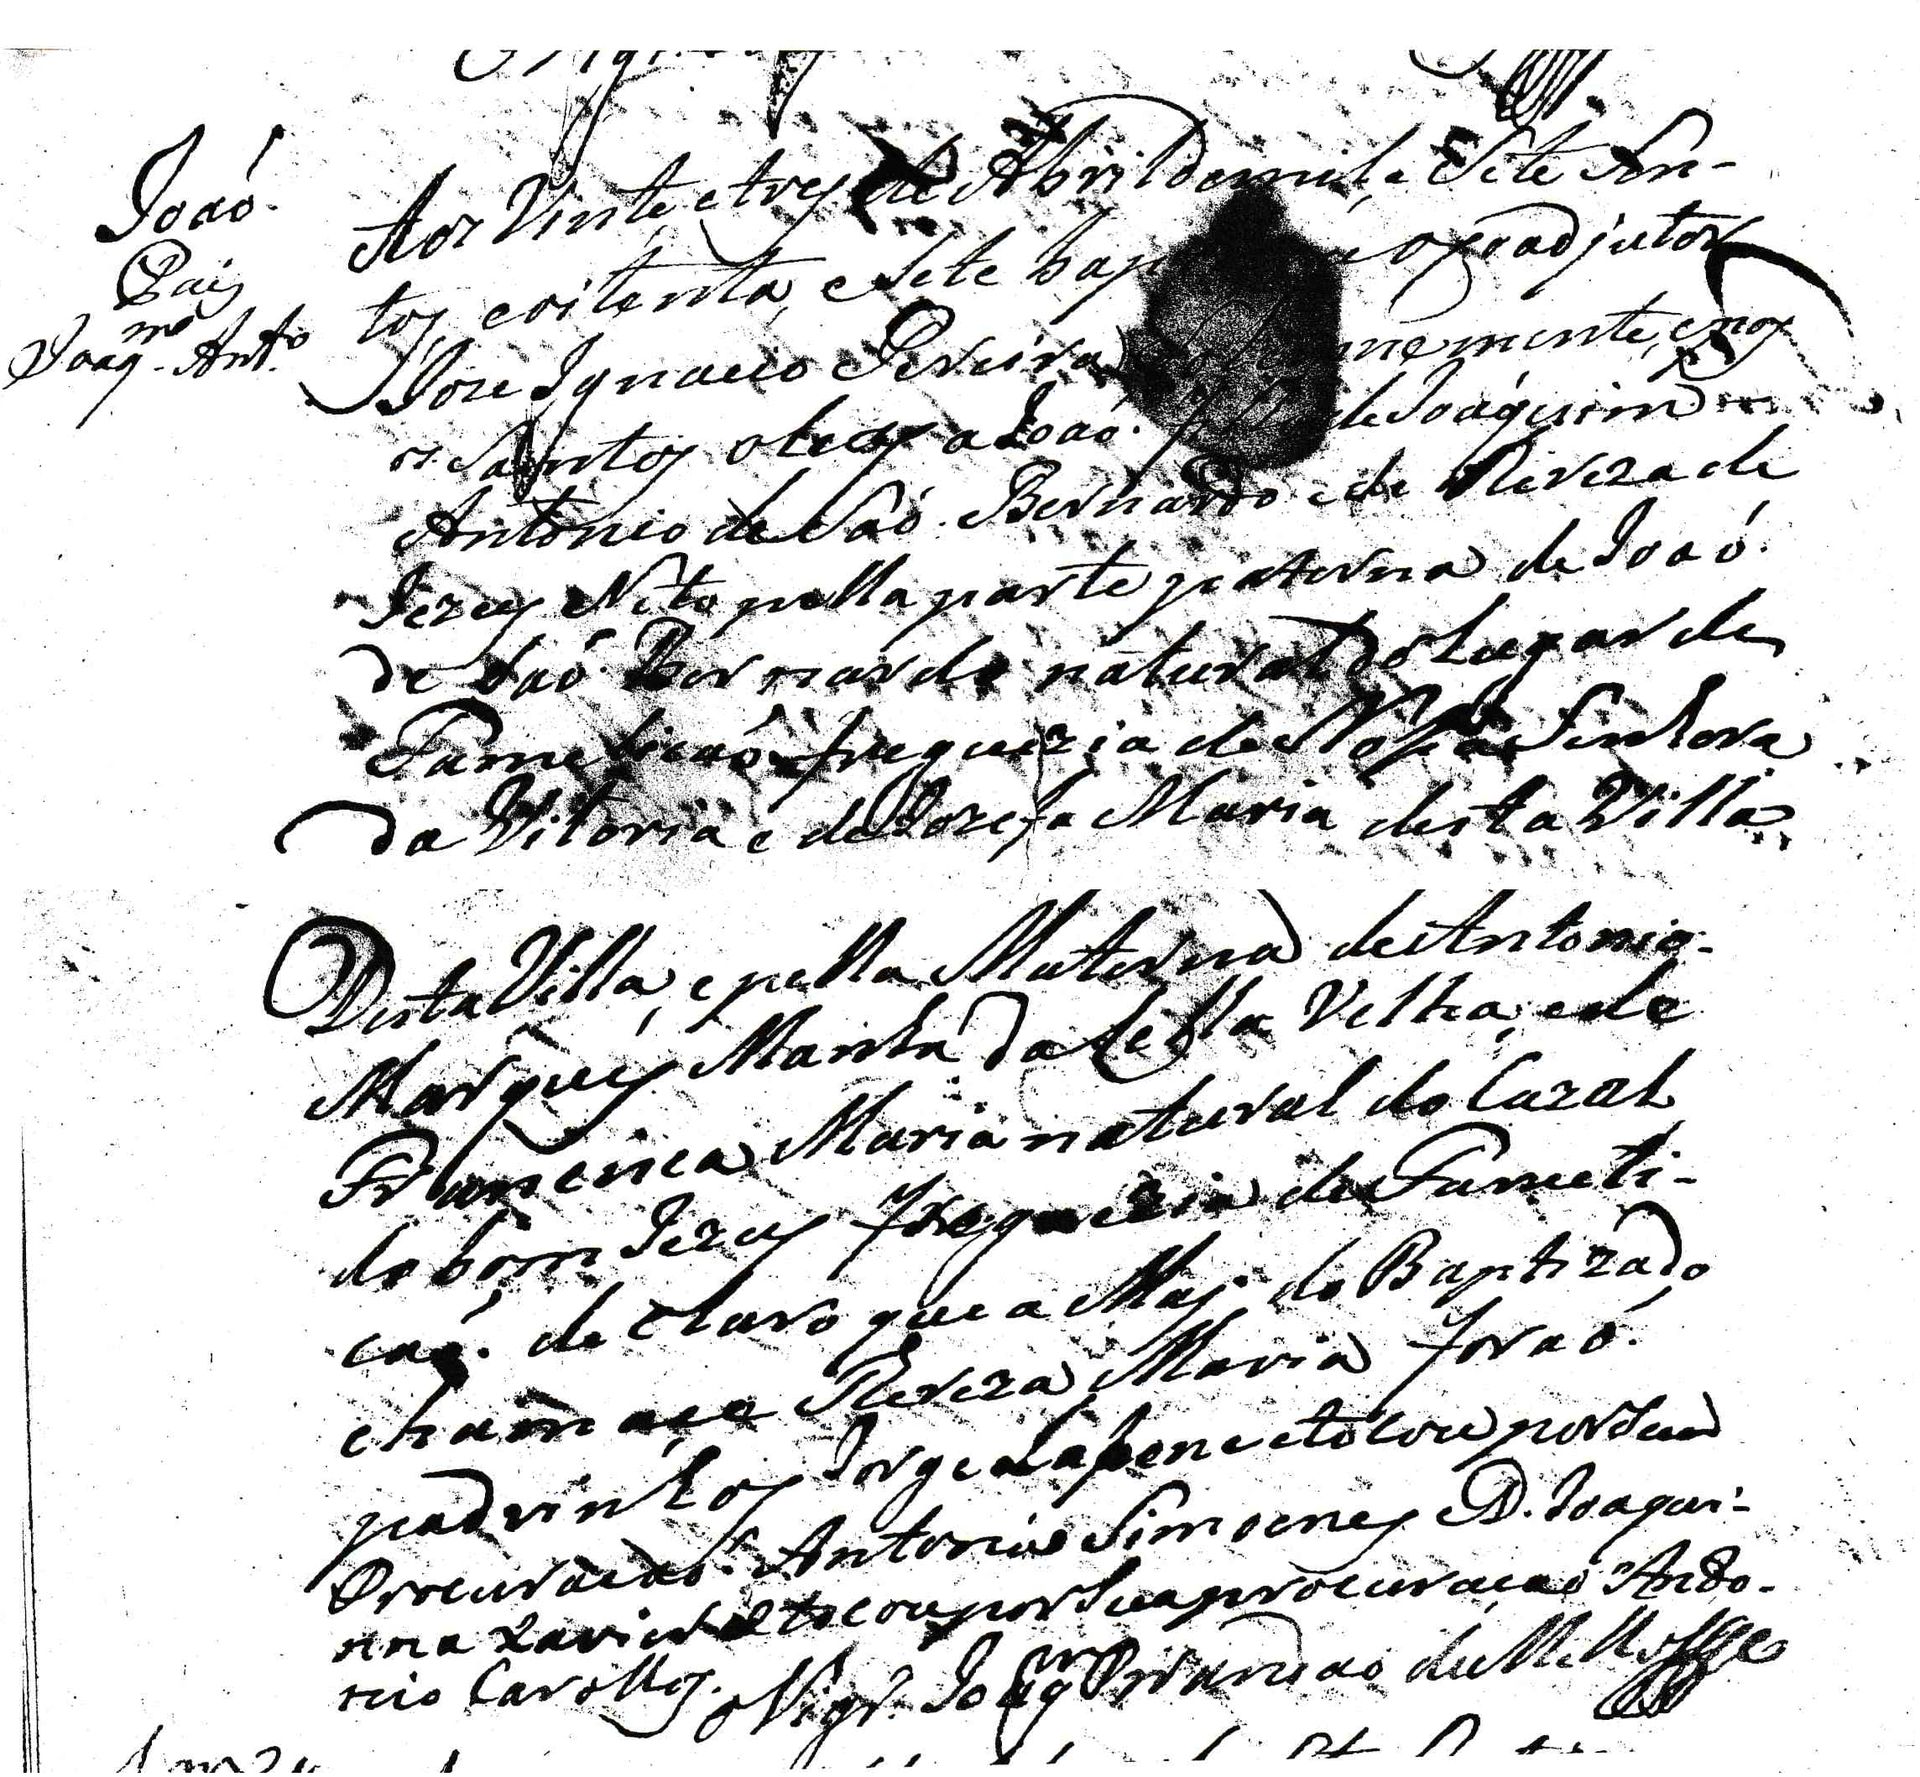 João.
Pais
Joaq.me Ant.o
Aos Vinte, e tres de Abril de mil, e Sete Sen-
tos, eoitenta, e Sete bap o coadjutor
Joze Ignacio Pereira nemente, e pos
os Santos oleos a João. de Joaquim
Antonio de São. Bernardo e de Tereza de
Jezus Neto pella parte paterna de João.
de São. Bernardo natural do Lugar de
Famelicão freguezia de Nossa Senhora
da Vitoria e de Jozefa Maria desta Villa
Desta Villa, e pella Materna de Antonio.
Marques Manhá da Sella Velha, e de
Francisca Maria natural do Cazal
do bom Jezus freguezia de Fameli-
cão. de claro que a Maj do Baptizado
chamase Tereza Maria forão.
padrinhos Jorge etocou por Sua
Procuração. Antonio Simoens, e D. Joaqui-
nna Xavier e tocou por Sua procuração Anto-
nio Carollos. o Vigr.o Joaq.m de Mello